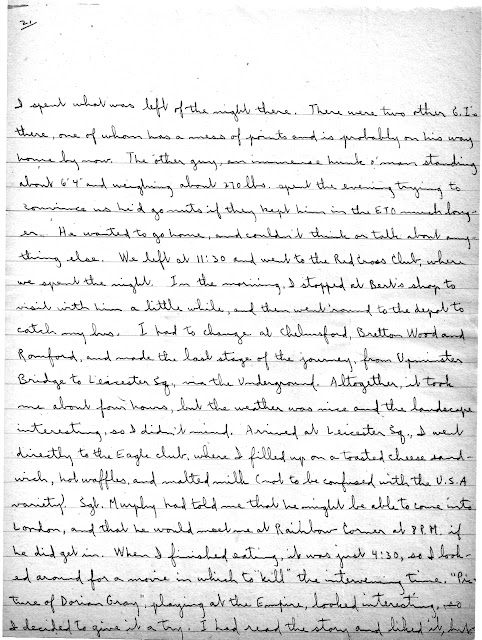 2.
I spent what was left of the night there. There were two other G.I's
there, one of whom has a mess of points and is probably on his way
home by now. The other guy, an immense hunk o' man standing
about 6'4" and weighing about 270 lbs. spent the evening trying to
convince us he'd go nuts if they kept him in the ETO much long-
er. He wanted to go home, and couldn't think or talk about any-
thing else. We left at 11:30 and went to the Red Cross Club, where
we spent the night. In the morning, I stopped at Bert's shop to
visit with him a little while, and then went 'round to the depot to
catch my bus. I had to change at Chelmsford, Bretton Wood and
Romford, and made the last stage of the journey, from Upminster
Bridge to Leicester Sq., via the Underground. Altogether, it took
me about four hours, but the weather was nice and the landscape
interesting, so I didn't mind. Arrived at Leicester Sq., I went
directly to the Eagle club, where I filled up on a toasted cheese sand-
wich, hot waffles, and malted milk (not to be confused with the U.S.A
variety). Sgt. Murphy had told me that he might be able to come into
London, and that he would meet me at Rainbow Corner at 8 P.M. if
he did get in. When I finished eating, it was just 4:30, so I look-
ed around for a movie in which to "kill" the intervening time. "Pic-
ture of Dorian Gray", playing at the Empire, looked interesting, so
I decided to give it a try. I had read the story and liked it, but